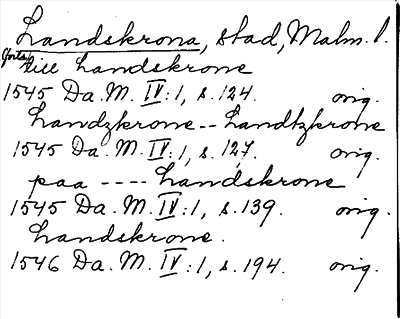 Landskrona, stad, Malm. l.
(forts.)
till Landskrone
1545 Da. M. IV:1, s. 124. orig.
Landzkrone -- Landtzkrone
1545 Da. M. IV:1, s. 127. orig.
paa ---- Landskrone
1545 Da. M. IV:1, s. 139. orig.
Landskrone.
1546 Da. M. IV:1, s. 194. orig.